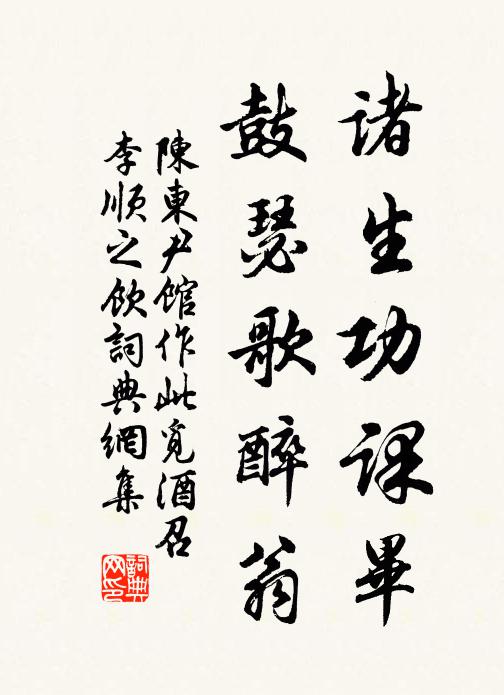 諸生功課畢
鼓瑟歌醉翁
陳東尹館作此覓酒召
李順之飲詞典網集
詞典网印